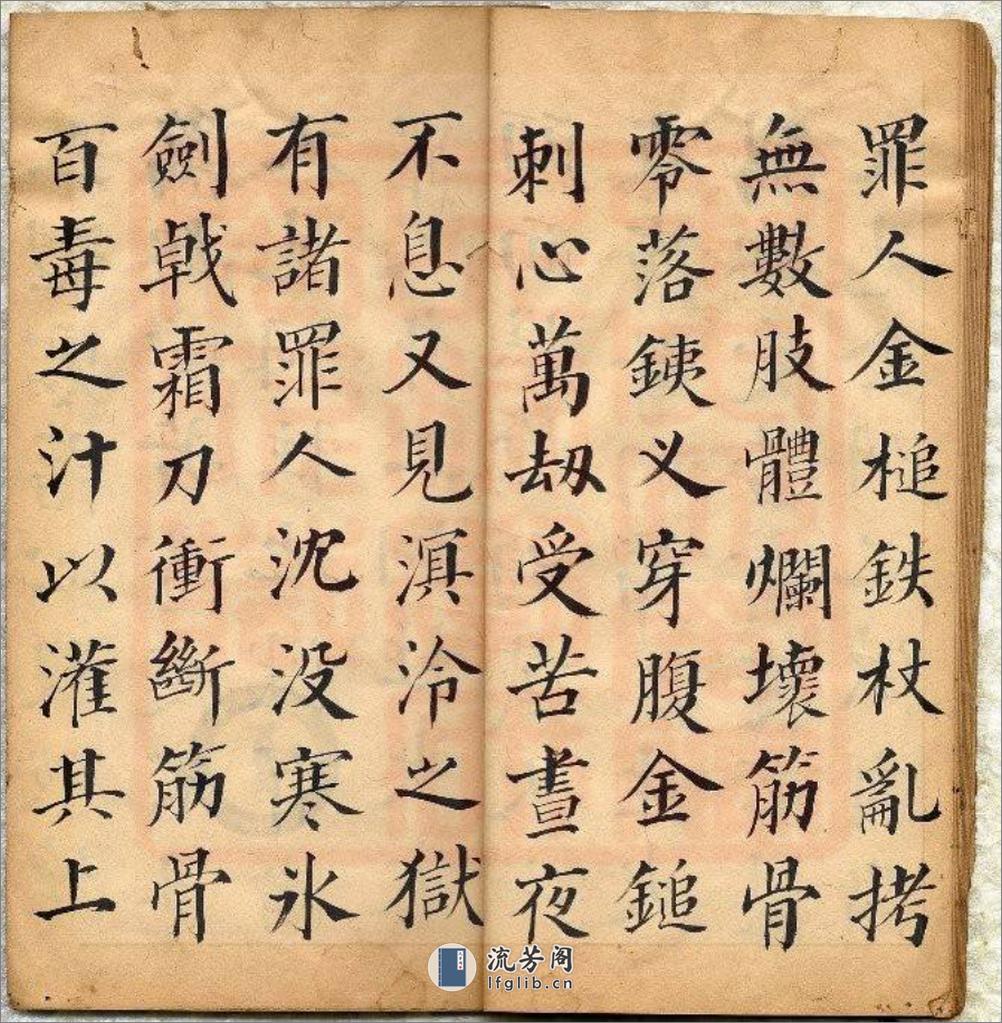 罪人金槌鉄杖亂拷
無數肢體爛壞筋骨
零落銕义穿腹金鎚
刺心萬劫受苦晝夜
不息又見溟泠之獄
有諸罪人沈没寒氷
劍戟霜刀衝斷筋骨
百毒之汁以灌其上
流芳阁
lfglib.cn